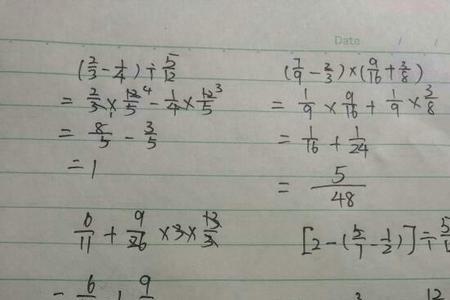 Date / /
(2/3 - 1/4) ÷ 5/12
= 2/3 × 12/5 - 1/4 × 12/5
= 8/5 - 3/5
= 1
(7/9 - 2/3) × (9/16 + 3/8)
= 1/9 × 9/16 + 1/9 × 3/8
= 1/16 + 1/24
= 5/48
6/11 + 9/26 × 3 ×
[2 - (5/7 - 1/2)] ÷
= 6 + 9